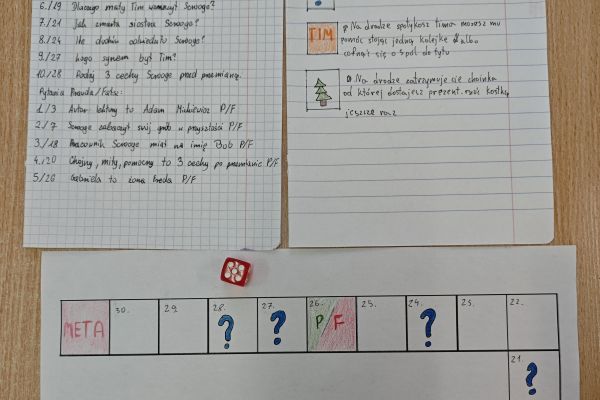 6./19 Dlaczego mały Tim wzruszył Scrooge?
7./21 Jak zmarła siostra Scrooge?
8./24 Ile duchów odwiedziło Scrooge?
9./27 Kogo synem był Tim?
10./28 Podaj 3 cechy Scrooge przed przemianą.
Pytania Prawda/Fałsz:
1./3 Autor lektury to Adam Mickiewicz P/F
2./7 Scrooge zobaczył swój grób w przyszłości P/F
3./18 Pracownik Scrooge miał na imię Bob P/F
4./20 Chojny, miły, pomocny to 3 cechy po przemianie P/F
5/26 Gabriela to żona Freda P/F
?
TIM
Na drodze spotykasz tima możesz mu
pomóc stojąc jedną kolejkę albo
cofnąć się o 5 pól do tyłu
Na drodze zatrzymuje cie choinka
od której dostajesz prezent. rzuć kostką
jeszcze raz
META
30.
29.
28. ?
27. ?
26. P/F
25.
24. ?
23.
22.
21. ?